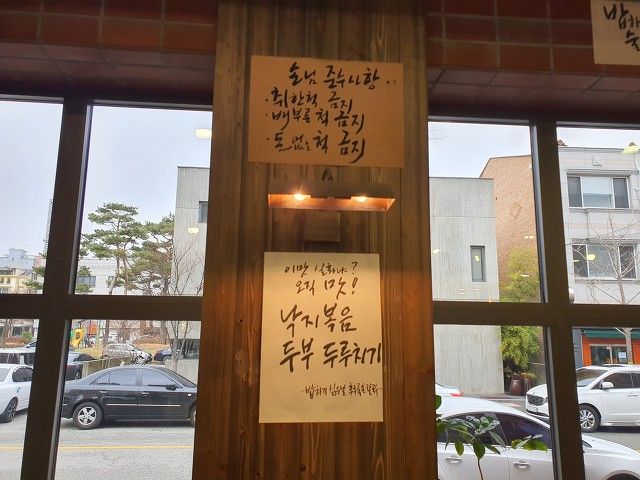 손님 준수사항
·취한척 금지
·배부를 척 금지
·돈 없는 척 금지
오직 맛!
낙지볶음
두부 두루치기